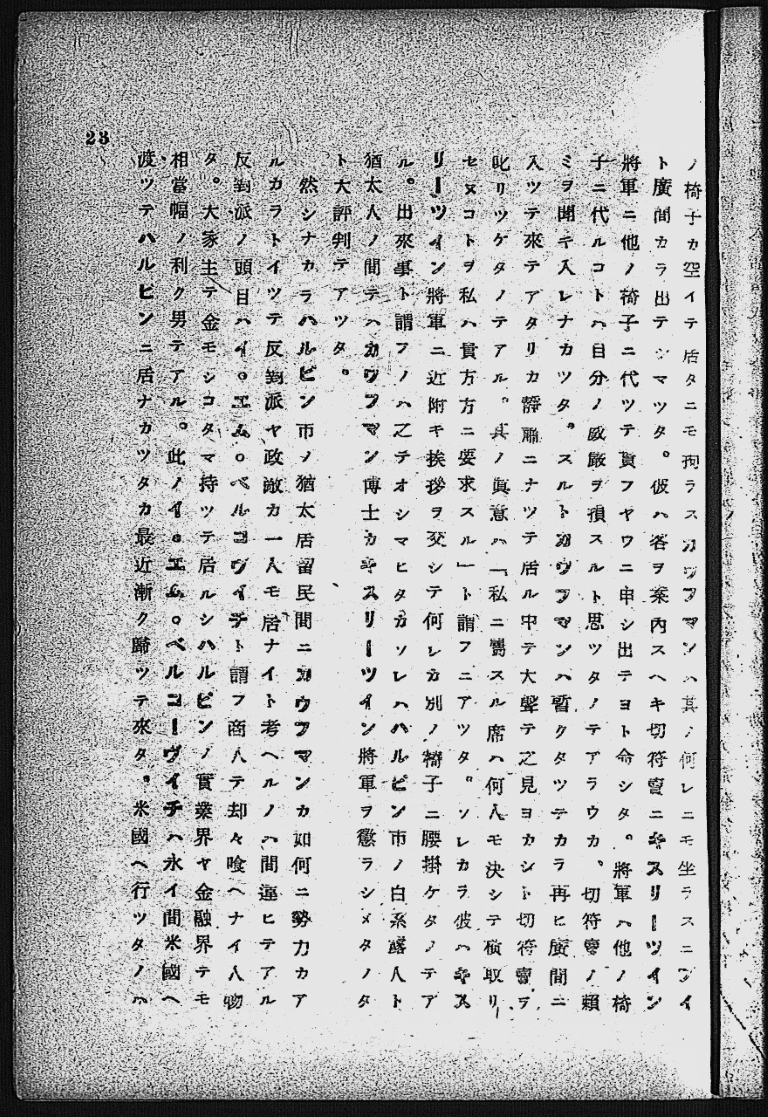 ノ椅子カ空イテ居タニモ拘ラスカウフマンハ其ノ何レニモ坐ラスニツイ
ト廣間カラ出テシマツタ。彼ハ客ヲ案内スヘキ切符賣ニキスリーツイン
將軍ニ他ノ椅子ニ代ツテ貰フヤウニ申シ出テヨト命シタ。將軍ハ他ノ椅
子ニ代ルコトハ自分ノ威嚴ヲ損スルト思ツタノテアラウカ、切符賣ノ賴
ミヲ聞キ入レナカツタ。スルトカウフマンハ暫クタツテカラ再ヒ廣間ニ
入ツテ來テアタリカ靜肅ニナツテ居ル中テ大聲テ之見ヨカシト切符賣ヲ
叱リツケタノテアル。其ノ眞意ハ「私ニ屬スル席ハ何人モ決シテ橫取リ
セヌコトヲ私ハ貴方方ニ要求スル」ト謂フニアツタ。ソレカラ彼ハキス
リーツイン將軍ニ近附キ挨拶ヲ交シテ何レカ別ノ椅子ニ腰掛ケタノテア
ル。出來事ト謂フノハ之テオシマヒタカソレハハルビン市ノ白系露人ト
猶太人ノ間テハカウフマン博士カキスリーツイン將軍ヲ懲ラシメタノタ
ト大評判テアツタ。
然シナカラハルビン市ノ猶太居留民間ニカウフマンカ如何ニ勢力カア
ルカラトイツテ反對派ヤ政敵カ一人モ居ナイト考ヘルノハ間違ヒテアル
反對派ノ頭目ハイ。エム。ベルコヴイチト謂フ商人テ却々喰ヘナイ人物
タ。大家主テ金モシコタマ持ツテ居ルシハルビンノ實業界ヤ金融界テモ
相當幅ノ利ク男テアル。此ノイ。エム。ベルコーヴイチハ永イ間米國ヘ
渡ツテハルビンニ居ナカツタカ最近漸ク歸ツテ來タ。米國ヘ行ツタノハ
23